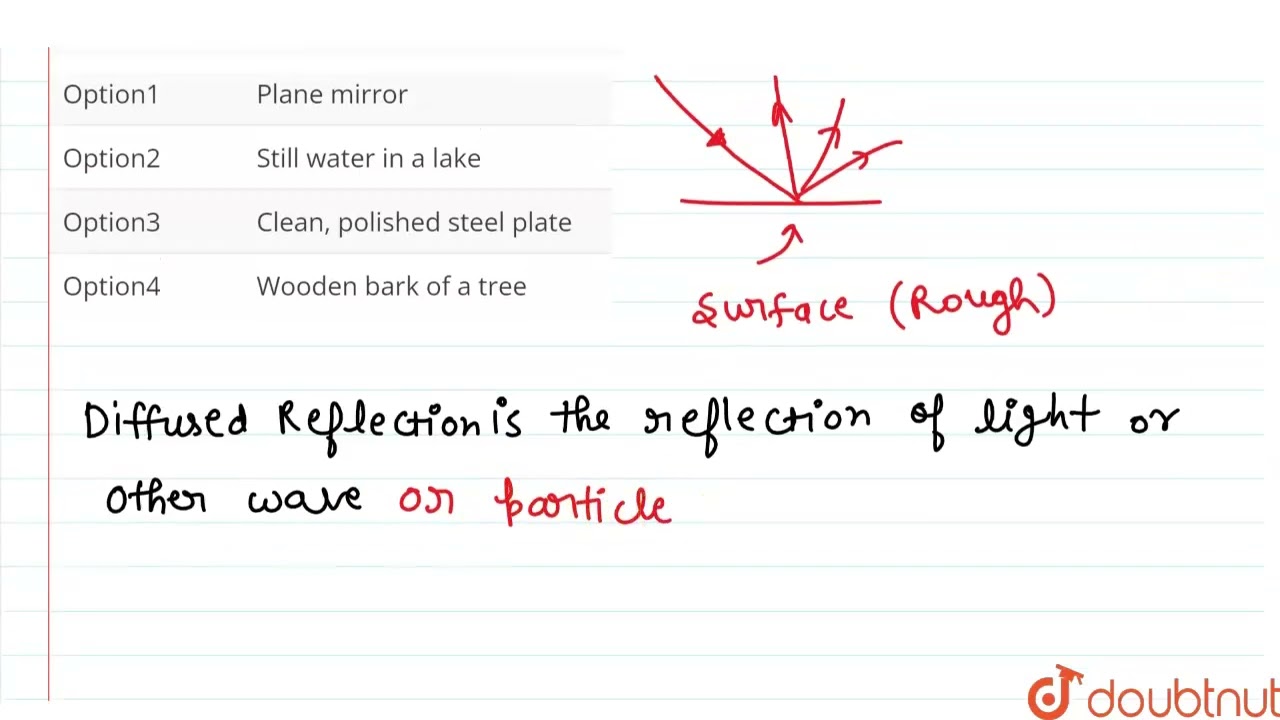 Option1 Plane mirror
Option2 Still water in a lake
Option3 Clean, polished steel plate
Option4 Wooden bark of a tree
Surface (Rough)
Diffused Reflection is the reflection of light or
other wave or particle
doubtnut